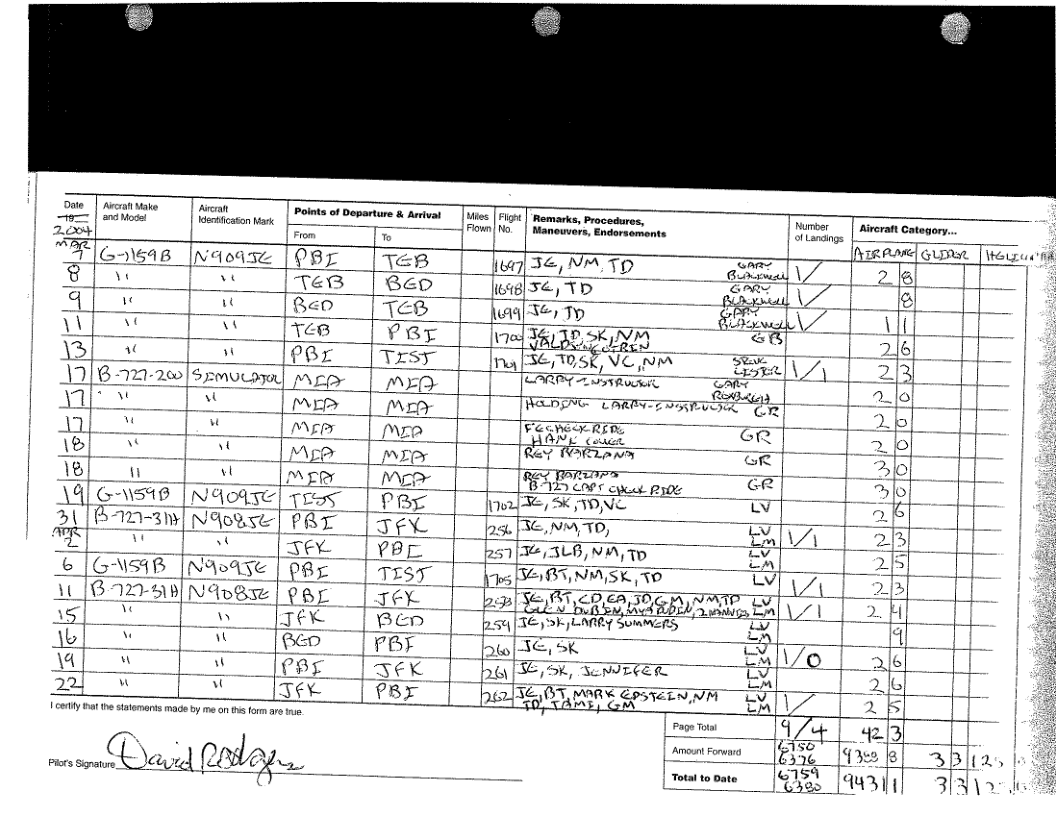 Date Aircraft Make and Model Aircraft Identification Mark Points of Departure & Arrival Miles Flown Flight No. Remarks, Procedures, Maneuvers, Endorsements Number of Landings Aircraft Category...
19
2004 From To AIRPLANE GLIDER
MAR
7 G-1159B N909JE PBI TEB 1697 JE, NM, TD GARY BLACKWELL 1/ 2 8
8 " " TEB BED 1698 JE, TD GARY BLACKWELL 1/ 8
9 " " BED TEB 1699 JE, TD GARY BLACKWELL 1/ 1 1
11 " " TEB PBI 1700 JE, TD, SK, NM GB 2 6
13 " " PBI TIST 1701 JE, TD, SK, VC, NM 1/1 2 3
17 B-727-200 SIMULATOR MIA MIA LARRY-INSTRUCTOR GARY ROXBURGH 2 0
17 " " MIA MIA HOLDING LARRY-INSTRUCTOR GR 2 0
17 " " MIA MIA FE CHECK RIDE GR 2 0
18 " " MIA MIA GR 3 0
18 " " MIA MIA B-727 CAPT CHECK RIDE GR 3 0
19 G-1159B N909JE TIST PBI 1702 JE, SK, TD, VC LV 2 6
31 B-727-31H N908JE PBI JFK 256 JE, NM, TD, LV LM 1/1 2 3
APR
2 " " JFK PBI 257 JE, JLB, NM, TD LV LM 2 5
6 G-1159B N909JE PBI TIST 1705 JE, BT, NM, SK, TD LV 1/1 2 3
11 B-727-31H N908JE PBI JFK 258 JE, BT, CD, EA, JD, GM, NM, TD LV LM 1/1 2 4
GLEN DUBIN,
15 " " JFK BED 259 JE, SK, LARRY SUMMERS LV LM 9
16 " " BED PBI 260 JE, SK LV LM 1/0 2 6
19 " " PBI JFK 261 JE, SK, JENNIFER LV LM 2 6
22 " " JFK PBI 262 JE, BT, MARK EPSTEIN, NM LV LM 1/ 2 5
TD, GM
I certify that the statements made by me on this form are true.
Page Total 9/4 42 3
Pilot's Signature David Rodgers
Amount Forward 6750 6376 9388 8 3 3
Total to Date 6759 6380 9431 1 3 3